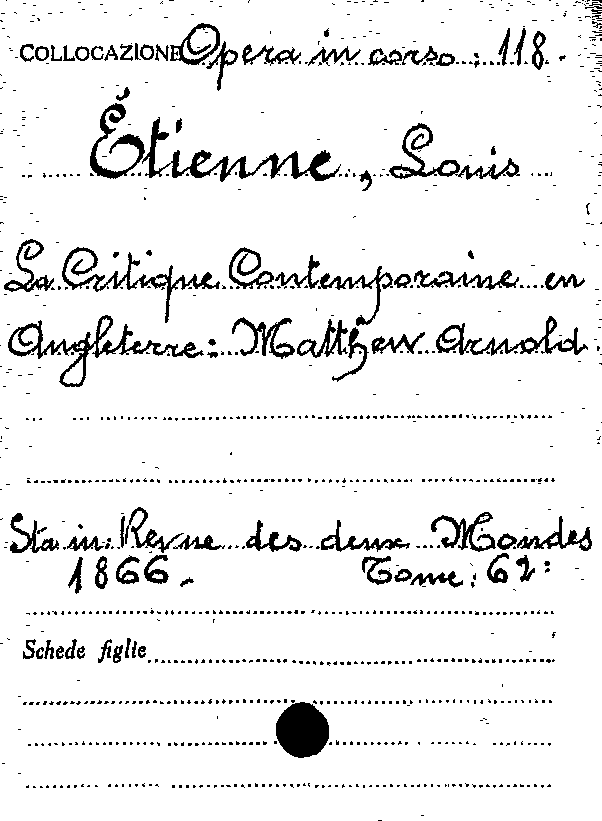 COLLOCAZIONE Opera in corso : 118.
Étienne, Louis
La Critique Contemporaine en
Angleterre: Matthew Arnold.
Sta in: Revue des deux Mondes
1866. Tome: 62:
Schede figlie